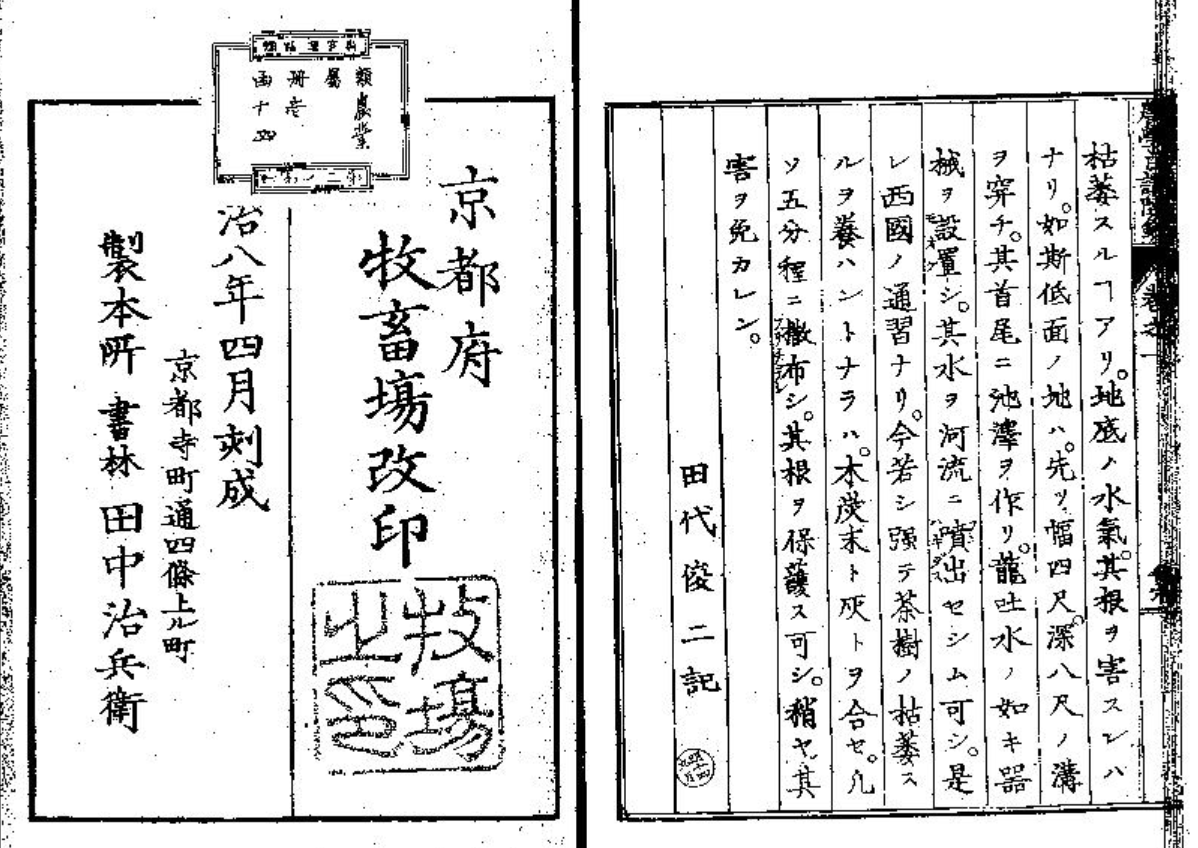 枯萎スルヿアリ。地底ノ水氣。其根ヲ害スレハ
ナリ。如斯低面ノ地ハ。先ツ幅四尺。深八尺ノ溝
ヲ穿チ。其首尾ニ池澤ヲ作リ。龍吐水ノ如キ器
械ヲ設置シ。其水ヲ河流ニ噴出セシム可シ。是
レ西國ノ通習ナリ。今若シ强テ茶樹ノ枯萎ス
ルヲ養ハントナラハ。木炭末ト灰トヲ合セ。凡
ソ五分程ニ撒布シ。其根ヲ保護ス可シ。稍ヤ其
害ヲ免カレン。
田代俊二記
京都府
牧畜場改印
牧場
之印
治八年四月刻成
京都寺町通四條上ル町
製本所 書林 田中治兵衛
類農業
屬
冊壱
函十四